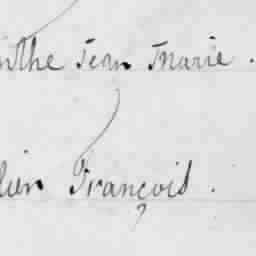 inthe Jean Marie.
lien François.